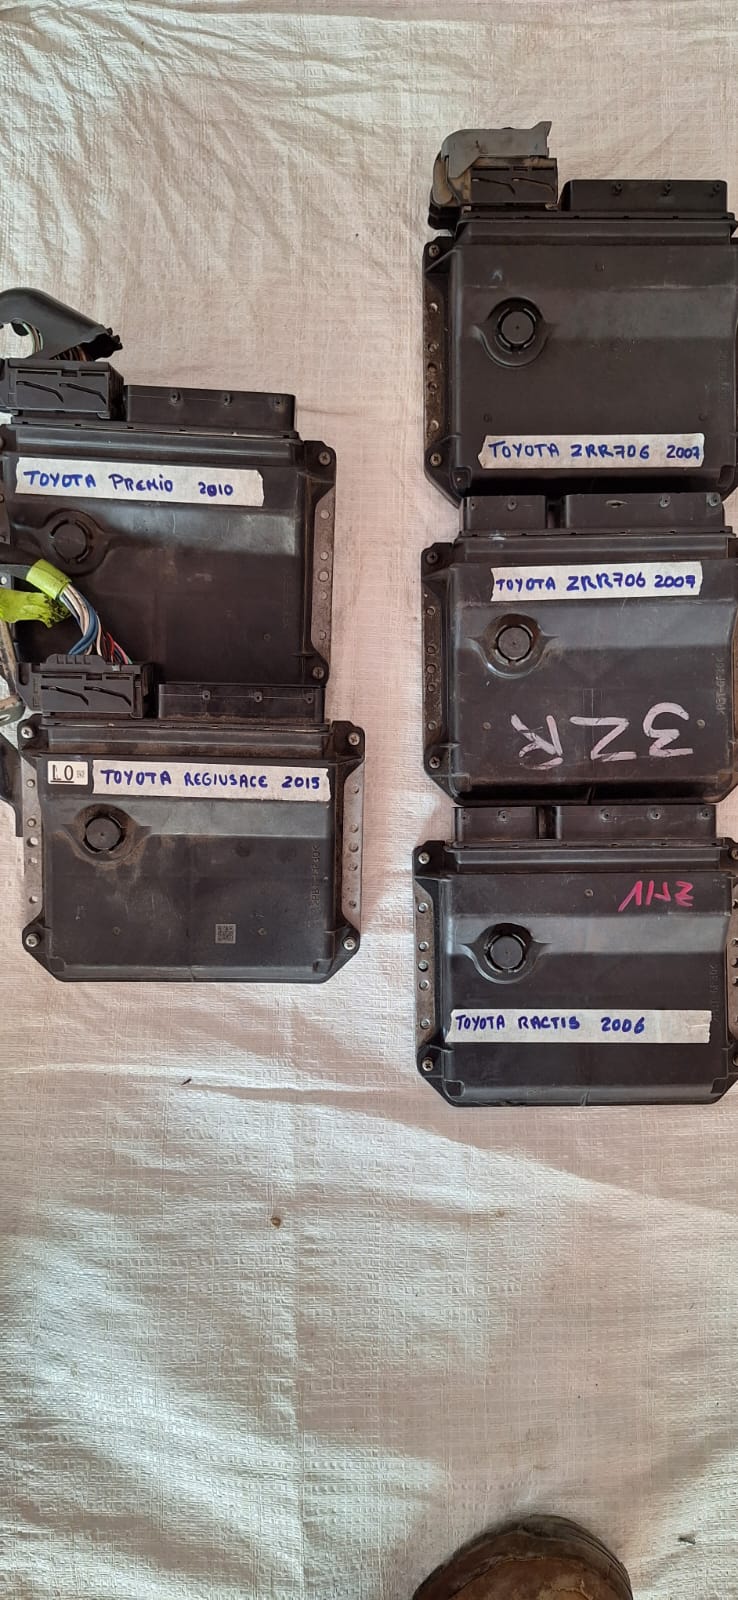 TOYOTA PREMIO 2010
LO TOYOTA REGIUSACE 2015
TOYOTA ZRR706 2007
TOYOTA ZRR706 2007
3ZR
TOYOTA RACTIS 2006